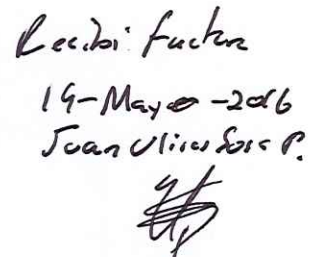 Recibi factura
19-Mayo-2016
Juan Ulises Sosa P.